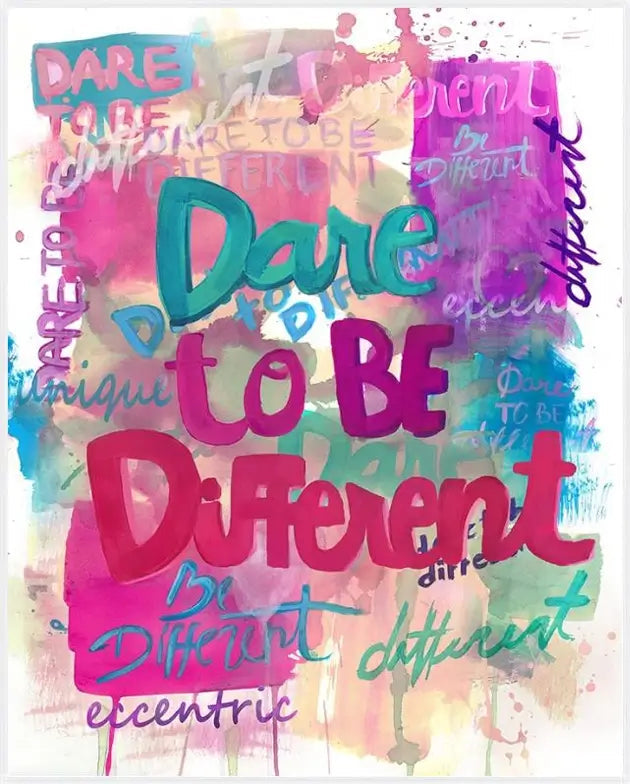 DARE
TO BE
different
Different
DARE TO BE
DIFFERENT
Be
Different
different
DARE TO BE
Dare
eccen
D
to
DIF
to BE
unique
Dare
TO BE
different
Dare
Different
Be
Different
different
eccentric